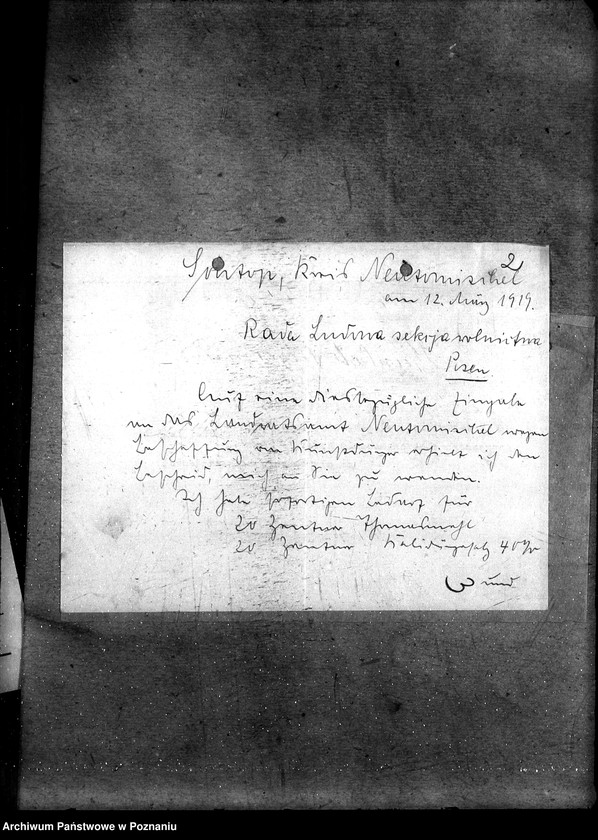 2
Sontop, Kreis Neutomischel
am 12. März 1919.
Rada Ludowa sekcja rolnictwa
Posen.
Auf eine diesbezügliche Eingabe
an das Landratsamt Neutomischel wegen
Beschaffung von Kunstdünger erhielt ich den
Bescheid, mich an Sie zu wenden.
Ich habe sofortigen Bedarf für
20 Zentner Thomasmehl
20 Zentner Kalidüngesalz 40%
und
Archiwum Państwowe w Poznaniu